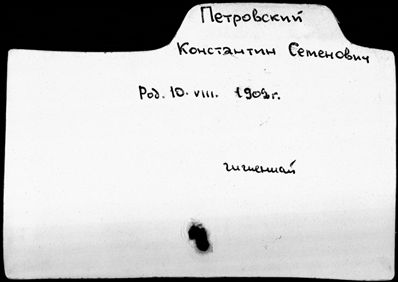 Петровский
Константин Семенович
Род. 10. VIII. 1909г.
гигиенист